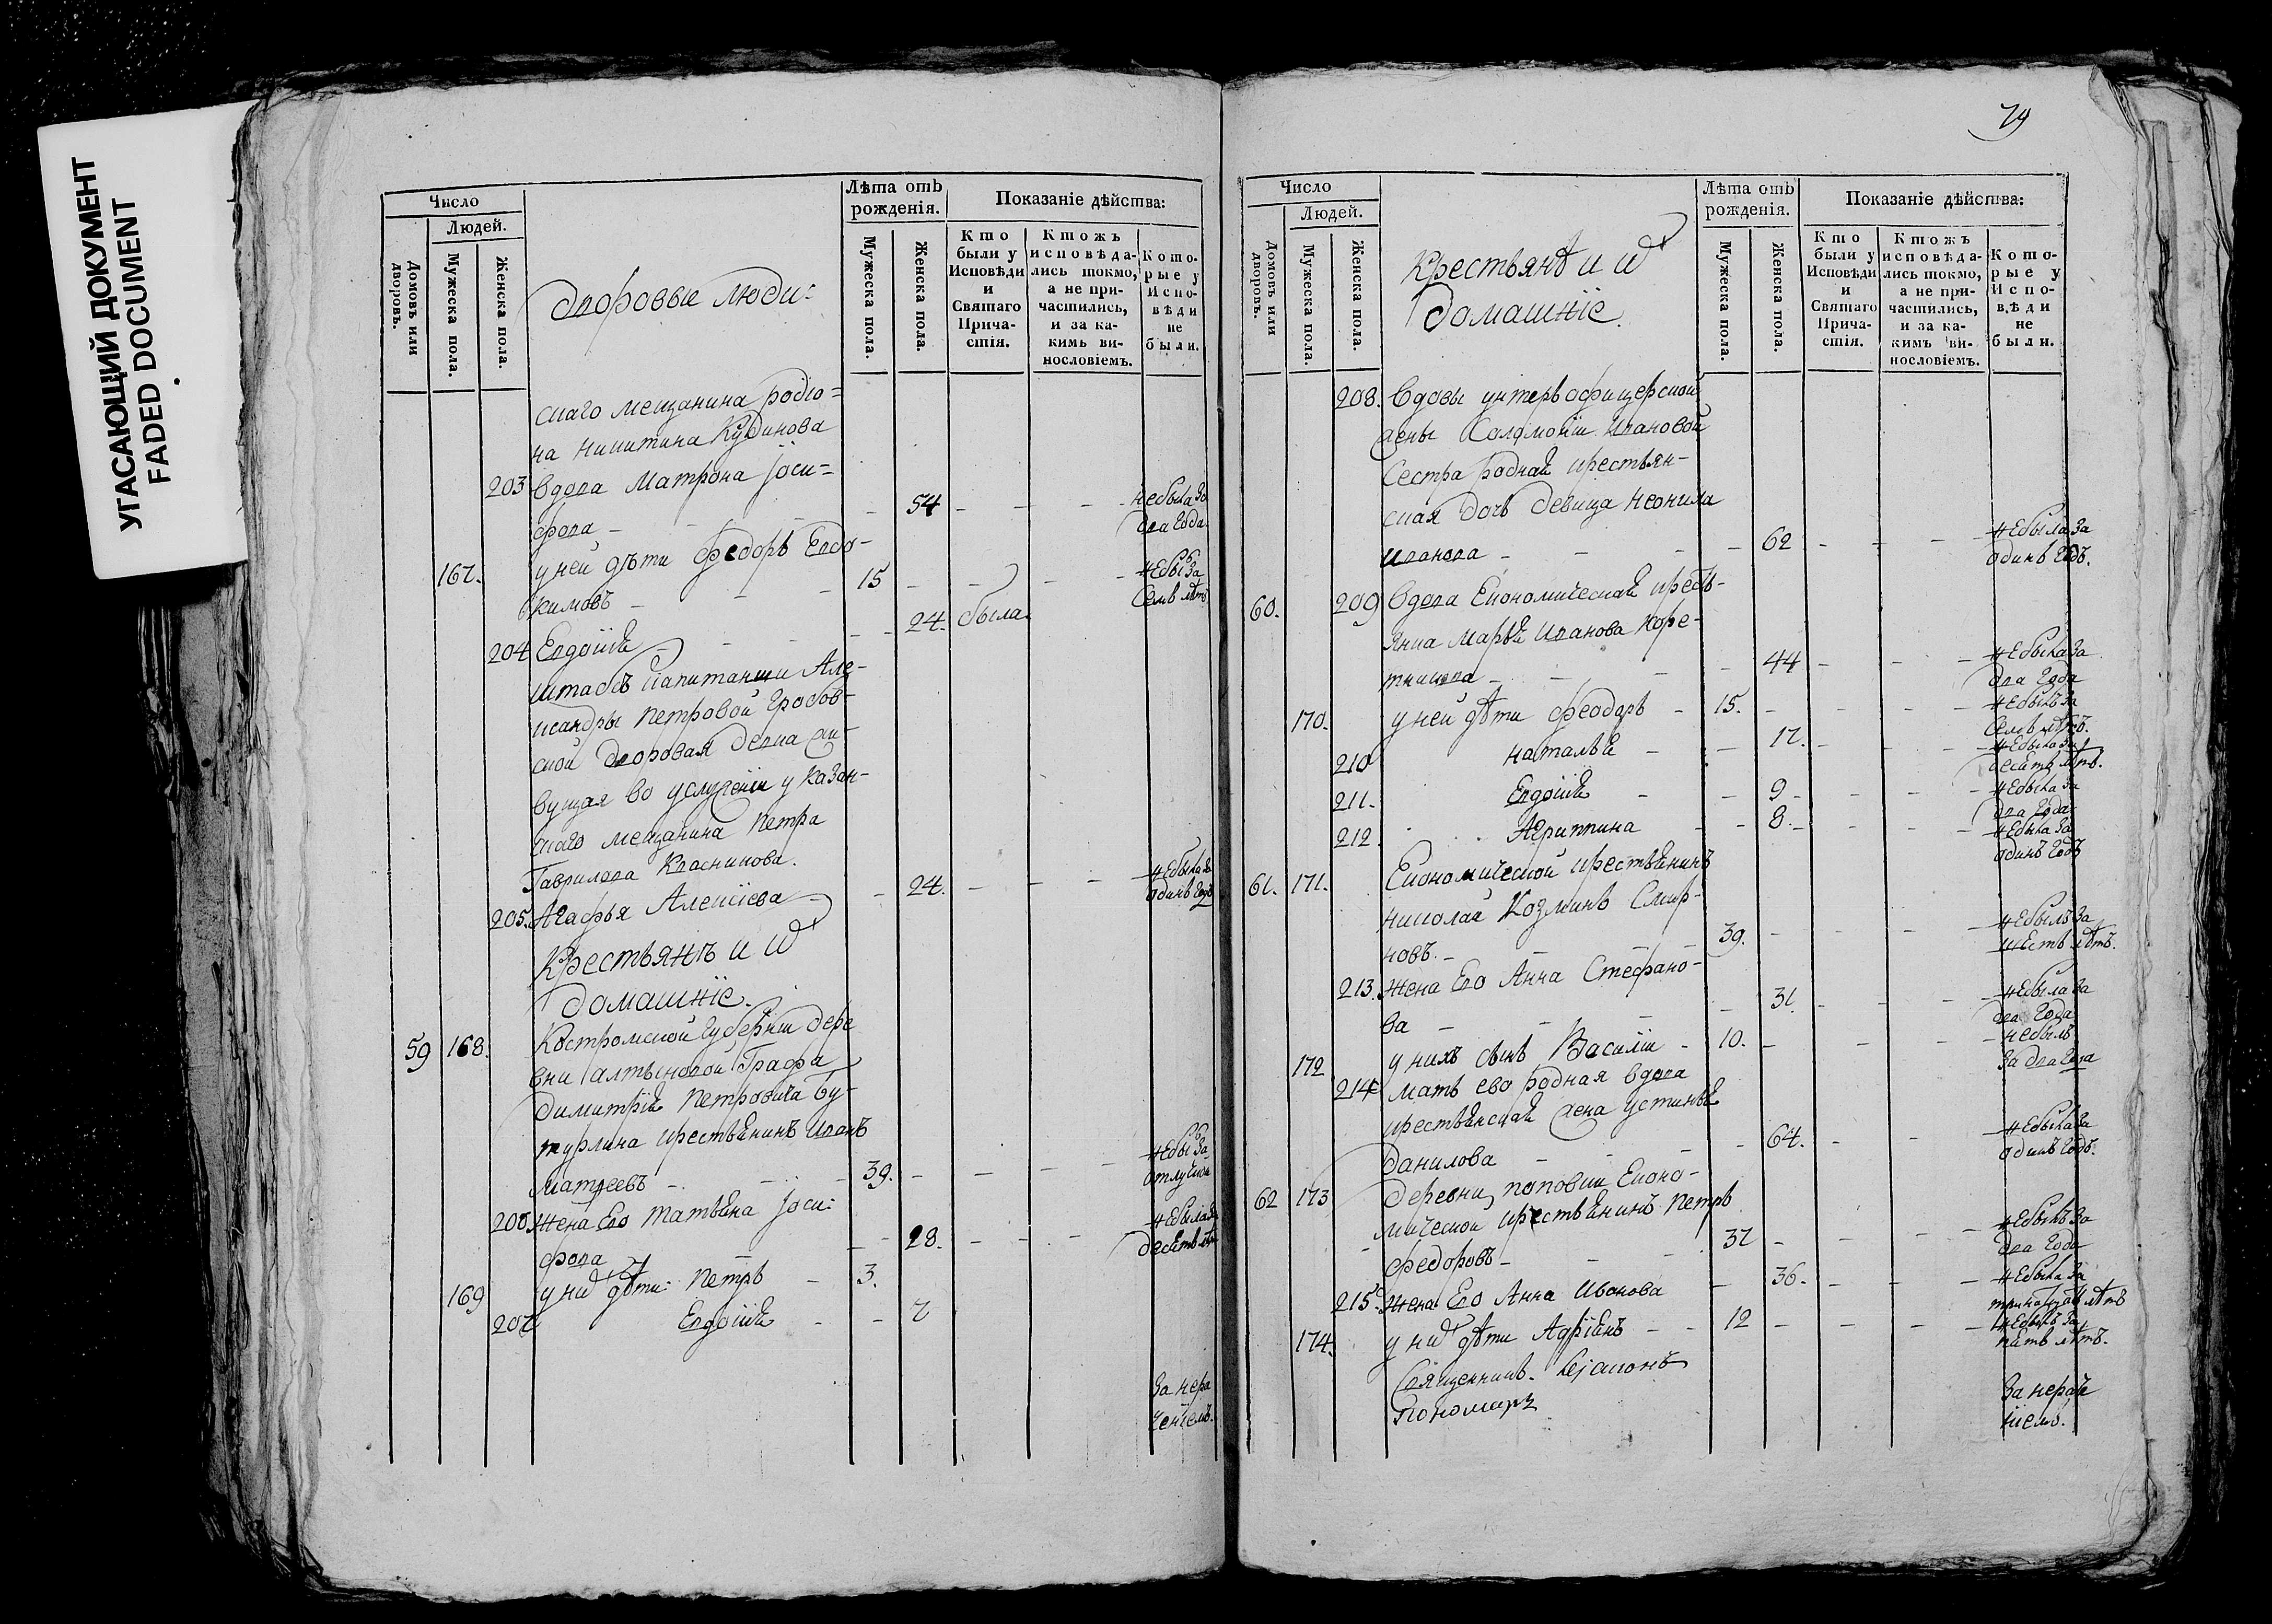 УГАСАЮЩИЙ ДОКУМЕНТ
FADED DOCUMENT
Число
Людей.
Домовъ или дворовъ.
Мужеска пола.
Женска пола.
Дворовые люди:
Лѣта отъ рожденія.
Мужеска пола.
Женска пола.
Показаніе дѣйства:
Кто были у Исповѣди и Святаго Причастія.
Ктожъ исповѣдались токмо, а не причастились, и за какимъ винословіемъ.
Которые у Исповѣди не были.
скаго мещанина Родіо=
на Никитина Кудинова
203 вдова Матрона Іоси=
фова - 54 - - - не была за два года
167. у ней дѣти Федоръ Евдо-
кимовъ - 15 - - - не бы за семь лѣтъ
204 Евдокія - 24. была
штабсъ капитанши Але-
ксандры Петровой Гробов-
ской дворовая девка жи-
вущая во услуженіи у казан-
скаго мещанина Петра
Гаврилова Квасникова.
205. Агафья Алексіева - 24. - - - не была за одинъ годъ
Крестьянъ и ихъ
домашніе.
59 168. Костромской губерніи дере
вни Алтыновой Графа
Димитрія Петровича Бу-
турлина крестьянинъ Иванъ
Матвеевъ - 39. - - - не бы за отлучкою
206. Жена Его Татьяна Іоси:
фова - 28. - - - не была за десеть лѣтъ
169 у нихъ дѣти: Петръ - 3.
207 Евдокія - - 2
за нера
ченіемъ.
79
Число
Людей.
Домовъ или дворовъ.
Мужеска пола.
Женска пола.
Крестьянѣ и ихъ
домашніе.
Лѣта отъ рожденія.
Мужеска пола.
Женска пола.
Показаніе дѣйства:
Кто были у Исповѣди и Святаго Причастія.
Ктожъ исповѣдались токмо, а не причастились, и за какимъ винословіемъ.
Которые у Исповѣди не были.
208. Вдовы унтеръ офицерской
жены Соломоніи Ивановой
Сестра родная крестьян-
ская дочь девица Неонила
Иванова - 62 - - - не была за одинъ годъ.
60. 209 Вдова Економическая кресть-
янка Марья Иванова Коре-
тникова - 44 - - - не была за два года
170. у ней дѣти Феодоръ - 15. - - - не былъ за семь лѣтъ.
210 Наталья - 12. - - - не была за десять лѣтъ.
211. Евдокія - - 9 - - - не была за два года
212. Агриппина - - 8. - - - не была за одинъ годъ
61. 171. Економической крестьянинъ
Николай Козминъ Смир-
новъ. - 39. - - - не былъ за шесть лѣтъ.
213. Жена Его Анна Стефано-
ва - 31. - - - не была за два года
172 у нихъ сынъ Василій - 10. - - - не былъ за два года
214 мать ево родная вдова
крестьянская жена Устинья
Данилова - 64. - - не была за одинъ годъ.
62 173 деревни поповки Еконо-
мической крестьянинъ Петръ
Федоровъ - 37 - - - не былъ за два года
215. Жена Его Анна Иванова - 36. - - - не была за тринатцать лѣтъ
174. у нихъ дѣти Адріянъ - - 12 - - - не былъ за пять лѣтъ.
Священникъ. Діаконъ
Пономарь
за нераче
ніемъ.